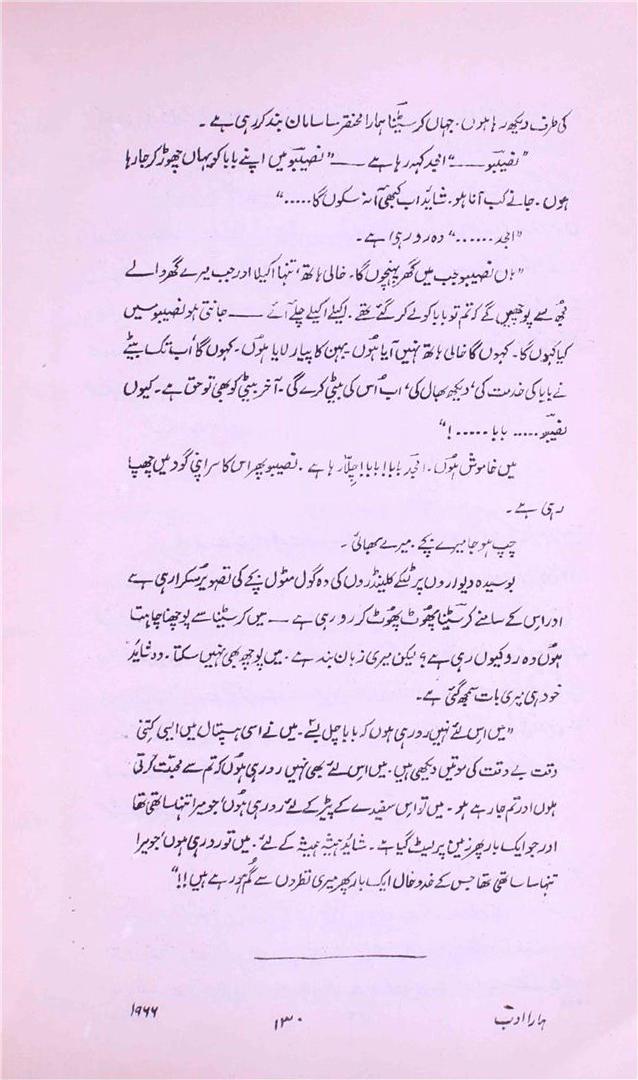 کی طرف دیکھ رہا ہوں۔ جہاں کرسٹینا ہمارا مختصر سا سامان بند کر رہی ہے ۔
”نصیبو —— “ امجد کہہ رہا ہے —— ”نصیبو میں اپنے بابا کو یہاں چھوڑ کر جا رہا
ہوں۔ جانے کب آنا ہو۔ شائد اب کبھی آ نہ سکوں گا ....."
”امجد ......" وہ رو رہی ہے ۔
”ہاں نصیبو جب میں گھر پہنچوں گا۔ خالی ہاتھ، تنہا اکیلا اور جب میرے گھر والے
مجھ سے پوچھیں گے کہ تم تو بابا کو لے کر گئے تھے۔ اکیلے اکیلے چلے آئے —— جانتی ہو نصیبو میں
کیا کہوں گا۔ کہوں گا خالی ہاتھ نہیں آیا ہوں۔ بہن کا پیار لایا ہوں۔ کہوں گا اب تک بیٹے
نے بابا کی خدمت کی، دیکھ بھال کی، اب اُس کی بیٹی کرے گی۔ آخر بیٹی کو بھی تو حق ہے۔ کیوں
نصیبو ..... بابا ..... !"
میں خاموش ہوں۔ امجد بابا! بابا! چِلّا رہا ہے۔ نصیبو پھر اس کا سر اپنی گود میں چھپا
رہی ہے ۔
چپ ہو جا میرے بچے۔ میرے بھائی ۔
بوسیدہ دیواروں پر ٹنگے کلینڈروں کی وہ گول مٹول بچے کی تصویر مسکرا رہی ہے
اور اس کے سامنے کرسٹینا پھُوٹ پھُوٹ کر رو رہی ہے —— میں کرسٹینا سے پوچھنا چاہتا
ہوں وہ رو کیوں رہی ہے؟ لیکن میری زبان بند ہے۔ میں پوچھ بھی نہیں سکتا۔ وہ شائد
خود ہی میری بات سمجھ گئی ہے۔
”میں اس لئے نہیں رو رہی ہوں کہ بابا چل بسے۔ میں نے اسی ہسپتال میں ایسی کتنی
وقت بے وقت کی موتیں دیکھی ہیں۔ میں اس لئے بھی نہیں رو رہی ہوں کہ تم سے محبت کرتی
ہوں اور تم جا رہے ہو۔ میں تو اس سفیدے کے پیڑ کے لئے رو رہی ہوں، جو میرا تنہا ساتھی تھا
اور جو ایک بار پھر زمین پر لیٹ گیا ہے۔ شائد ہمیشہ ہمیشہ کے لئے۔ میں تو رو رہی ہوں، جو میرا
تنہا سا ساتھی تھا جس کے خد و خال ایک بار پھر میری نظروں سے گُم ہو رہے ہیں!!“
ہمارا ادب ۱۳۰ ۱۹۶۶